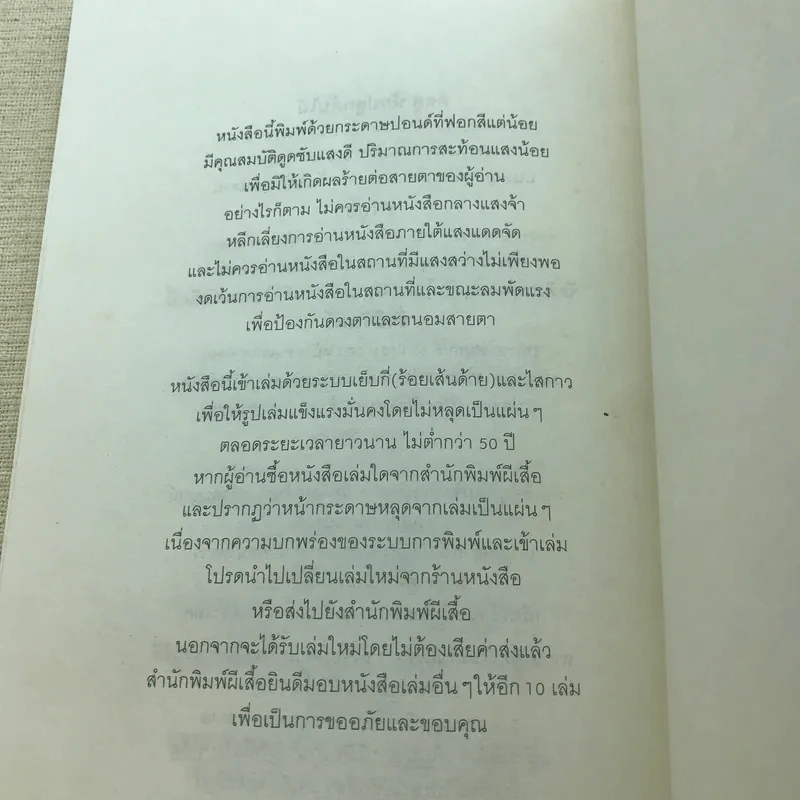 หนังสือนี้พิมพ์ด้วยกระดาษปอนด์ที่ฟอกสีแต่น้อย
มีคุณสมบัติดูดซับแสงดี ปริมาณการสะท้อนแสงน้อย
เพื่อมิให้เกิดผลร้ายต่อสายตาของผู้อ่าน
อย่างไรก็ตาม ไม่ควรอ่านหนังสือกลางแสงจ้า
หลีกเลี่ยงการอ่านหนังสือภายใต้แสงแดดจัด
และไม่ควรอ่านหนังสือในสถานที่มีแสงสว่างไม่เพียงพอ
งดเว้นการอ่านหนังสือในสถานที่และขณะลมพัดแรง
เพื่อป้องกันดวงตาและถนอมสายตา
หนังสือนี้เข้าเล่มด้วยระบบเย็บกี่(ร้อยเส้นด้าย)และไสกาว
เพื่อให้รูปเล่มแข็งแรงมั่นคงโดยไม่หลุดเป็นแผ่นๆ
ตลอดระยะเวลายาวนาน ไม่ต่ำกว่า 50 ปี
หากผู้อ่านซื้อหนังสือเล่มใดจากสำนักพิมพ์ผีเสื้อ
และปรากฏว่าหน้ากระดาษหลุดจากเล่มเป็นแผ่นๆ
เนื่องจากความบกพร่องของระบบการพิมพ์และเข้าเล่ม
โปรดนำไปเปลี่ยนเล่มใหม่จากร้านหนังสือ
หรือส่งไปยังสำนักพิมพ์ผีเสื้อ
นอกจากจะได้รับเล่มใหม่โดยไม่ต้องเสียค่าส่งแล้ว
สำนักพิมพ์ผีเสื้อยินดีมอบหนังสือเล่มอื่นๆให้อีก 10 เล่ม
เพื่อเป็นการขออภัยและขอบคุณ